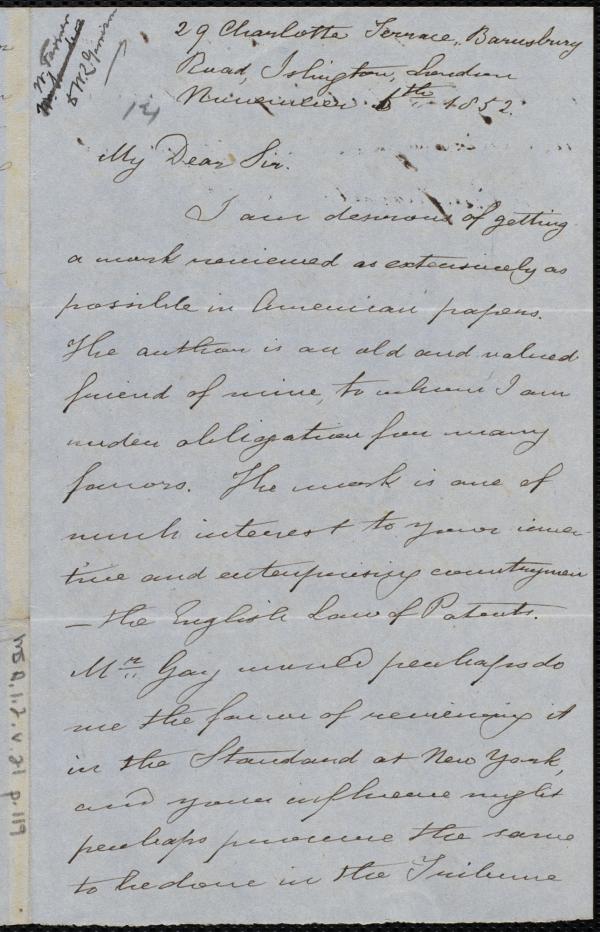 29 Charlotte Terrace, Barnsbury
Road, Islington, London
November 6th 1852.
W. Farmer
to W. L. Garrison
My Dear Sir.
I am desirous of getting
a work reviewed as extensively as
possible in American papers.
The author is an old and valued
friend of mine, to whom I am
under obligation for many
favors. The work is one of
much interest to your inven-
tive and enterprising countrymen
— the English Law of Patents.
Mr. Gay would perhaps do
me the favor of reviewing it
in the Standard at New York,
and your influence might
perhaps procure the same
to be done in the Tribune
Ms A.1.2. v.21 p.119